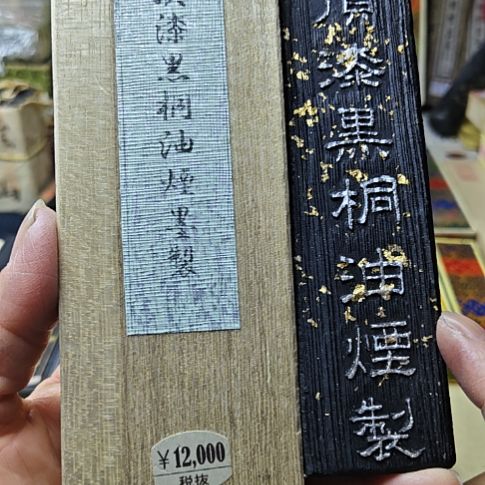 漆黒桐油煙墨製
頂漆黒桐油煙製
¥12,000
税抜